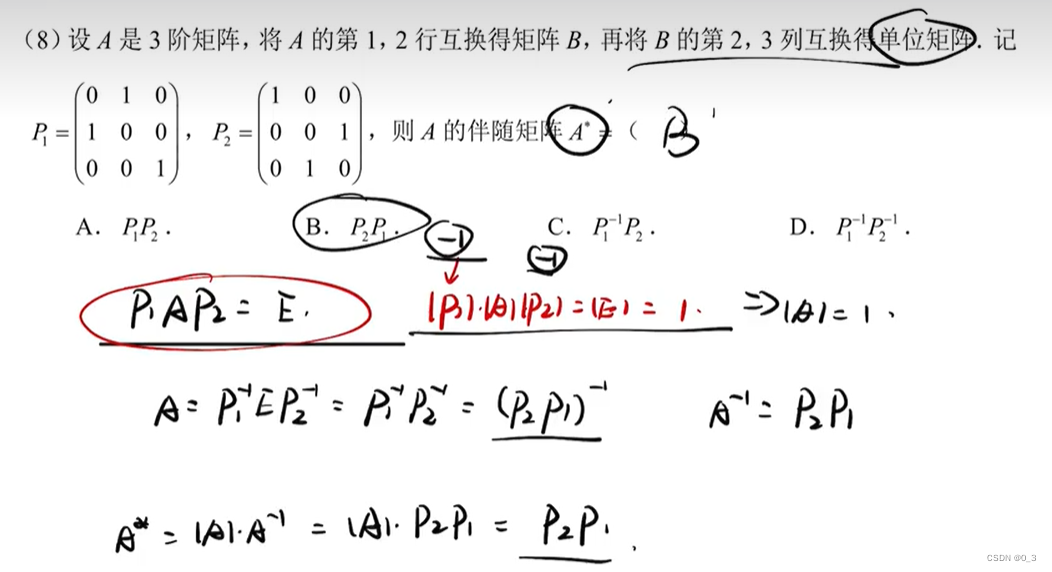 (8) 设 A 是 3 阶矩阵,将 A 的第 1, 2 行互换得矩阵 B,再将 B 的第 2, 3 列互换得单位矩阵. 记
P₁ = (0 1 0; 1 0 0; 0 0 1), P₂ = (1 0 0; 0 0 1; 0 1 0), 则 A 的伴随矩阵 A* = ( B
A. P₁P₂. B. P₂P₁. C. P₁⁻¹P₂. D. P₁⁻¹P₂⁻¹.
-1 -1
P₁AP₂ = E. |P₁|·|A||P₂| = |E| = 1. ⇒ |A| = 1.
A = P₁⁻¹EP₂⁻¹ = P₁⁻¹P₂⁻¹ = (P₂P₁)⁻¹ A⁻¹ = P₂P₁
A* = |A|·A⁻¹ = |A|·P₂P₁ = P₂P₁.
CSDN @0_3